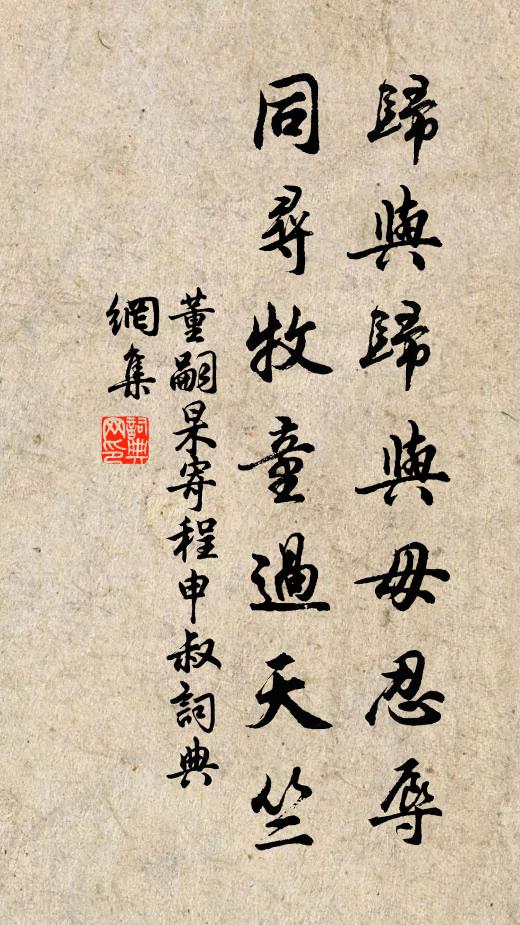 歸與歸與毋忍辱
同尋牧童過天竺
董嗣杲寄程申叔詞典
網集
詞典網印